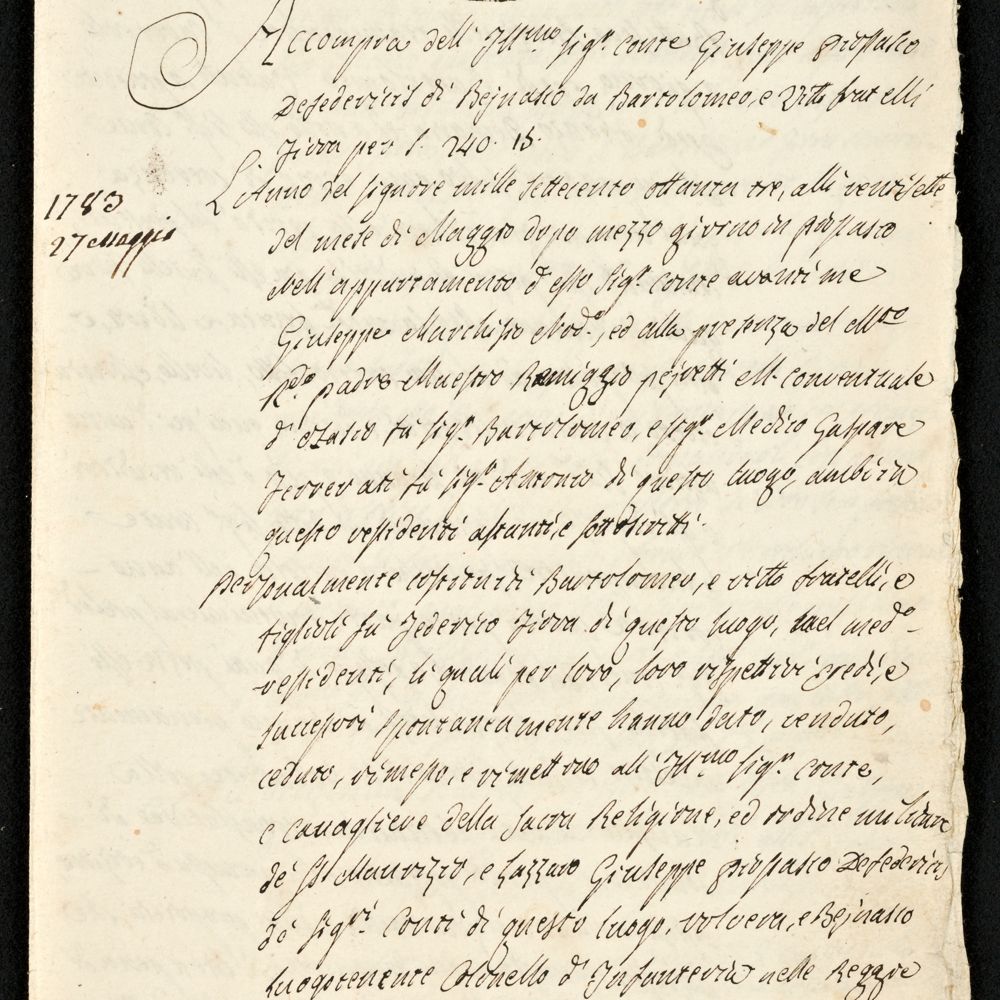 Accompra dell' Ill.mo Sig.r Conte Giuseppe Piossasco
Defedericis di Bejnasco da Bartolomeo, e Vitto fratelli
Fiora per L. 240. 15.
L'Anno del Signore mille settecento ottanta tre, alli ventisette
1783
27 Maggio
del mese di Maggio dopo mezzo giorno in Piossasco
nell'appartamento d'esso Sig.r Conte avanti me
Giuseppe Marchisio Nod.o, ed alla presenza del M.to
R.do padre Maestro Remiggio Pejretti M. Conventuale
d' fù Sig.r Bartolomeo, e Sig.r Medico Gaspare
Ferrerati fù Sig.r Antonio di questo luogo, ambi in
questo residenti astanti, e sottoscritti.
Personalmente costituiti Bartolomeo, e Vitto fratelli, e
figlioli fù Federico Fiora di questo luogo, nel med.o
residenti, li quali per loro, loro rispettivi eredi, e
successori spontaneamente hanno dato, venduto,
ceduto, rimesso, e rimettono all' Ill.mo Sig.r Conte,
e Cavagliere della Sacra Religione, ed ordine militare
de' S.ti Maurizio, e Lazzaro Giuseppe Piossasco Defedericis
de' Sig.ri Conti di questo luogo, Volvera, e Bejnasco
Luogotenente Colonello d' Infanteria nelle Reggie